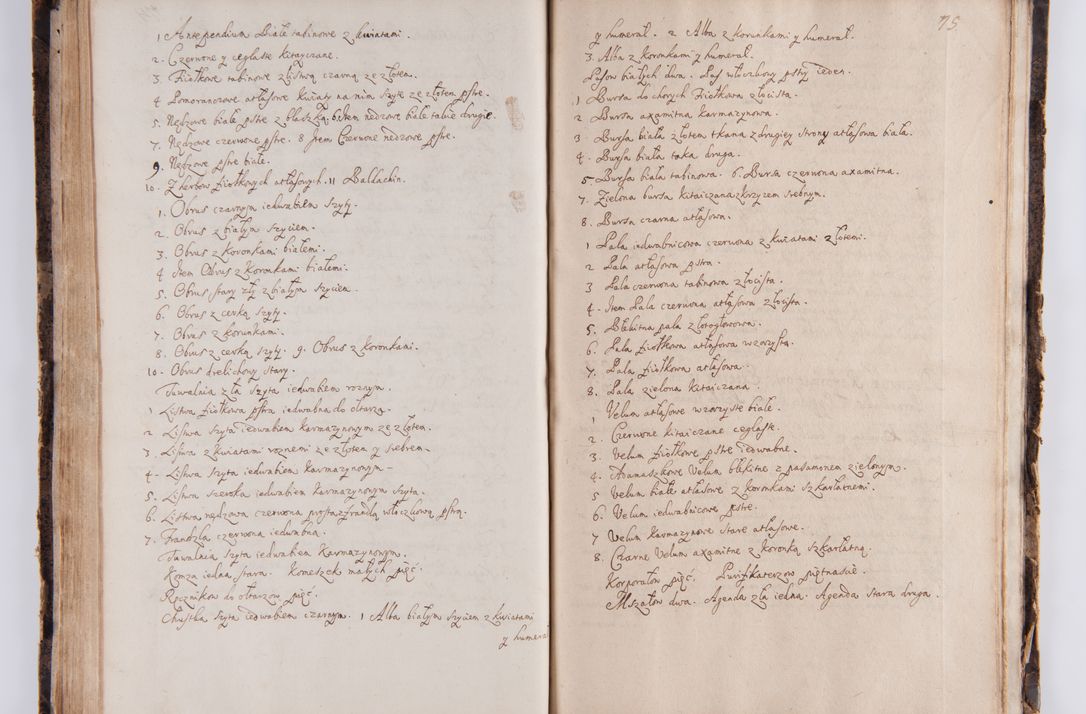 1 Antependium Białe tabinowe z kwiatami.
2. Czerwone y ceglaste kitayczane.
3. Fiołkowe tabinowe z listwą czarną ze złotem.
4 Pomoranczowe atłasowe kwiaty na nim szyte ze złotem pstre.
5. Nędzowe białe pstre z blaszką. 6. Item nędzowe białe takie drugie.
7. Nędzowe czerwone pstre. 8 Item Czerwone nędzowe pstre.
9. Nędzowe pstre białe.
10. Z herbow fiołkowych atłasowych. 11 Baldachin.
1. Obrus czarnym iedwabiem szyty.
2. Obrus z białym szyciem.
3. Obrus z koronkami białemi.
4 Item Obrus z koronkami białemi.
5. Obrus stary zły z białym szyciem.
6. Obrus z cewką szyty.
7. Obrus z korunkami.
8. Obrus z cewką szyty. 9. Obrus z koronkami.
10. Obrus drelichowy stary.
Tuwalnia zła szyta iedwabiem roznym.
1 Listwa fiołkowa pstra iedwabna do ołtarza.
2 Listwa szyta iedwabiem karmazynowym ze złotem.
3. Listwa z kwiatami roznemi ze złotem y srebrem.
4. Listwa szyta iedwabiem karmazynowym
5. Listwa szeroka iedwabiem karmazynowym szyta.
6. Listwa nędzowa czerwona prosta z frandzlą włoczkową pstrą.
7. Frandzla czerwona iedwabna.
Tuwalnia szyta iedwabiem karmazynowym.
Komza iedna stara. Komeszek małych pięć.
Ręcznikow do ołtarzow pięć.
Chustka szyta iedwabiem czarnym. 1 Alba białym szyciem z kwiatami
y humerał
75
y humerał. 2 Alba z korunkami y humerał.
3. Alba z koronkami y humerał.
Pasow białych dwa. Pas włoczkowy pstry ieden.
1 Bursa do chorych Fiołkowa złocista.
2 Bursa axamitna karmazynowa.
3. Bursa biała złotem tkana z drugiey strony atłasowa biała.
4. Bursa biała taka druga.
5 Bursa biała tabinowa. 6. Bursa czerwona axamitna.
7. Zielona bursa kitaiczana z krzyzem srebnym.
8. Bursa czarna atłasowa.
1 Pala iedwabnicowa czerwona z kwiatami złotemi.
2 Pala atłasowa pstra.
3 Pala czerwona tabinowa złocista.
4. Item Pala czerwona atłasowa złocista.
5. Błękitna pala złotogłowowa.
6. Pala fiołkowa atłasowa wzorzysta.
7. Pala fiołkowa atłasowa.
8. Pala zielona kitaiczana.
1 Velum atłasowe wzorzyste białe.
2. Czerwone kitaiczane ceglaste.
3. Velum fiołkowe pstre iedwabne.
4. Adamaszkowe Velum błekitne z pasamonem zielonym.
5 Velum białe atłasowe z koronkami szkarłatnemi.
6. Velum iedwabnicowe pstre.
7 Velum karmazynowe stare atłasowe.
8. Czarne Velum axamitne z koronką szkarłatną.
Korporałow pięć. Puryfikaterzow piętnascie.
Mszałow dwa. Agenda zła iedna. Agenda stara druga.